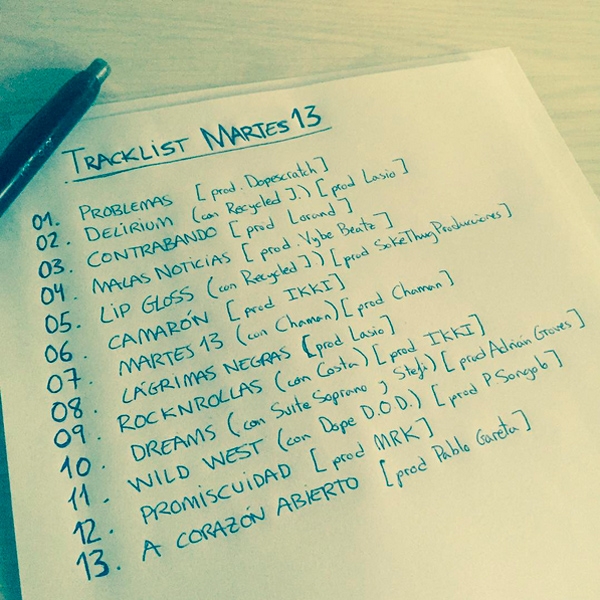 TRACKLIST MARTES 13
01. PROBLEMAS [prod. Dopescratch]
02. DELIRIUM (con Recycled J.) [prod Lasio]
03. CONTRABANDO [prod Lorand]
04. MALAS NOTICIAS [prod. Vybe Beatz]
05. LIP GLOSS (con Recycled J) [prod SokeThugProducciones]
06. CAMARÓN [prod IKKI]
07. MARTES 13 (con Chaman) [prod Chaman]
08. LÁGRIMAS NEGRAS [prod Lasio]
09. ROCKNROLLAS (con Costa) [prod IKKI]
10. DREAMS (con Suite Soprano y Steji) [prod Adrián Groves]
11. WILD WEST (con Dope D.O.D.) [prod P. Songob]
12. PROMISCUIDAD [prod MRK]
13. A CORAZÓN ABIERTO [prod Pablo Gareta]